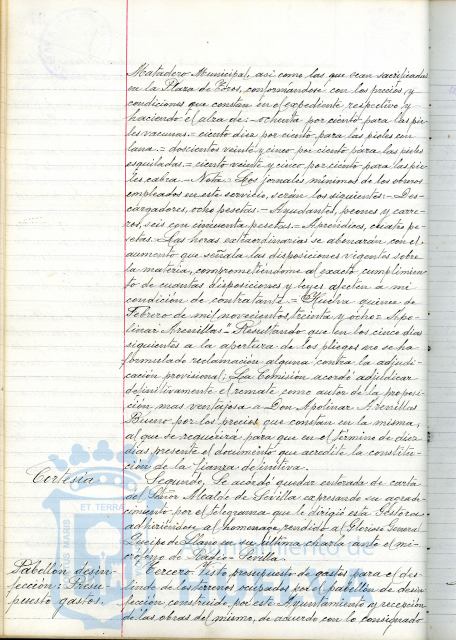 Matadero Municipal, así como las que sean sacrificadas
en la Plaza de Toros, conformándose con los precios y
condiciones que constan en el expediente respectivo y
haciendo el alza de: = ochenta por ciento para las pie-
les vacunas = ciento diez por ciento para las pieles con
lana. = doscientos veinte y cinco por ciento para las pieles
esquiladas. = ciento veinte y cinco por ciento para las pie-
les cabra - Nota = Los jornales mínimos de los obreros
empleados en este servicio, serán los siguientes: = Des-
cargadores, ocho pesetas. = Ayudantes, peones y carre-
ros, seis con cincuenta pesetas = Aprendices, cuatro pe-
setas = Las horas extraordinarias se abonarán con el
aumento que señala las disposiciones vigentes sobre
la materia, comprometiéndome al exacto cumplimien-
to de cuantas disposiciones y leyes afecten a mi
condición de contratante. = Huelva quince de
Febrero de mil novecientos treinta y ocho = Apo-
linar Arenillas = Resultando que en los cinco días
siguientes a la apertura de los pliegos no se ha
formulado reclamación alguna contra la adjudi-
cación provisional; La Comisión acordó adjudicar
definitivamente el remate como autor de la proposi-
ción mas ventajosa a Don Apolinar Arenillas
Bueno por los precios que constan en la misma,
al que se requerirá para que en el término de diez
días presente el documento que acredite la constitu-
ción de la fianza definitiva.
Cortesía
Segundo. Se acordó quedar enterada de carta
del Señor Alcalde de Sevilla expresando su agrade-
cimiento por el telegrama que le dirigió esta Gestora
adhiriéndose al homenaje rendido al Glorioso General
Queipo de Llano en su última charla ante el mi-
crófono de Radio-Sevilla.
Pabellón desin-
fección: Presu-
puesto gastos.
Tercero. Visto presupuesto de gastos para el des-
linde de los terrenos ocupados por el pabellón de desin-
fección, construido por este Ayuntamiento y recepción
de las obras del mismo, de acuerdo con lo consignado
ET TERRA
Ayuntamiento de